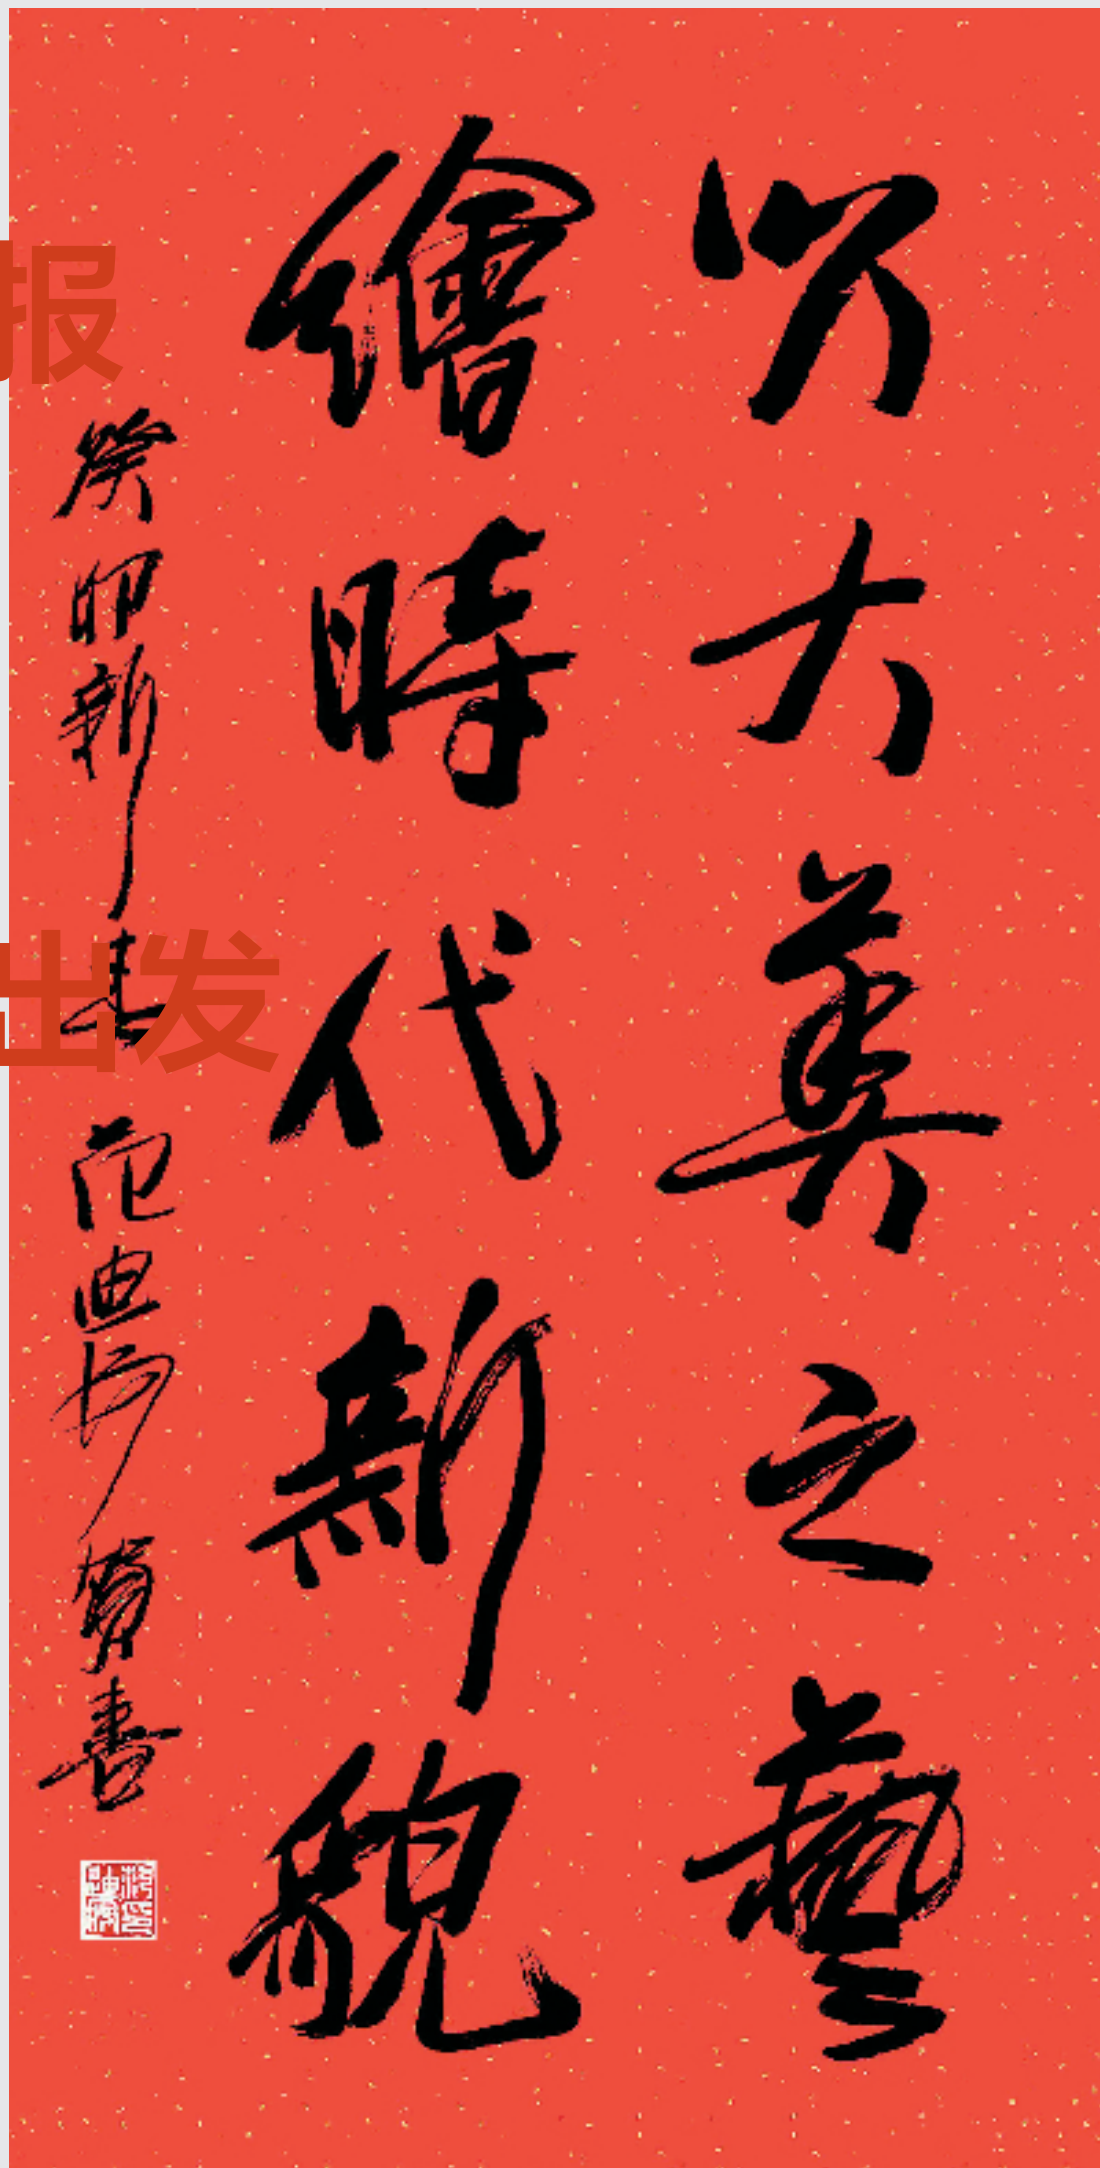 以大美之藝
繪時代新貌
癸卯新春 范迪安賀書
报
出发